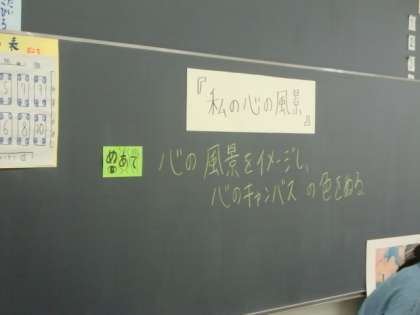 『私の心の風景』
めあて
心の風景をイメージし、
心のキャンバスの色をぬる